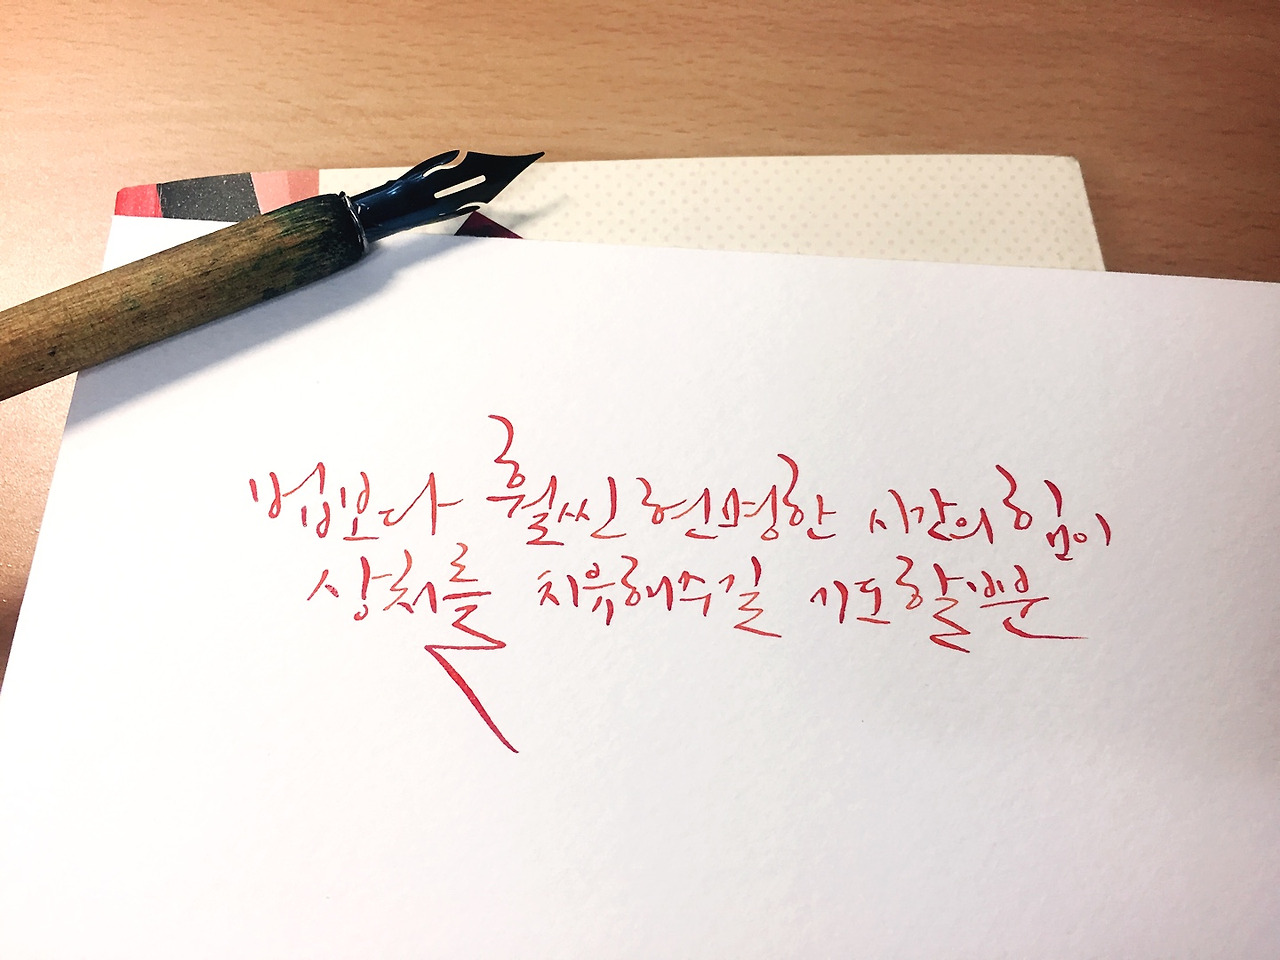 법보다 훨씬 현명한 시간의 힘이
상처를 치유해주길 기도할 뿐